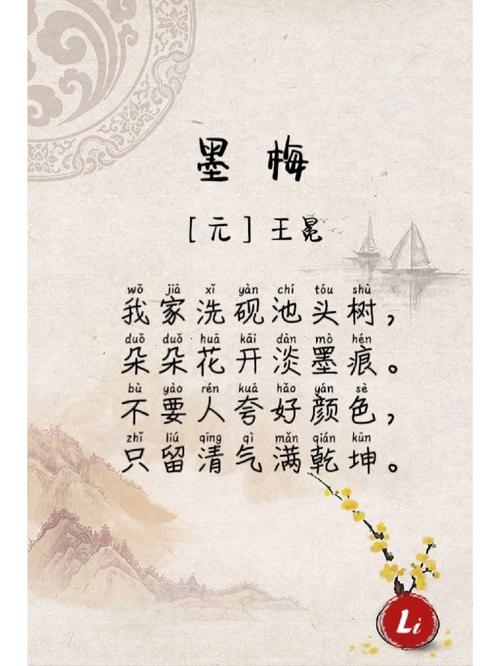 墨梅
[元]王冕
wǒ jiā xǐ yàn chí tóu shù
我家洗砚池头树，
duǒ duǒ huā kāi dàn mò hén
朵朵花开淡墨痕。
bù yào rén kuā hǎo yán sè
不要人夸好颜色，
zhǐ liú qīng qì mǎn qián kūn
只留清气满乾坤。
Li